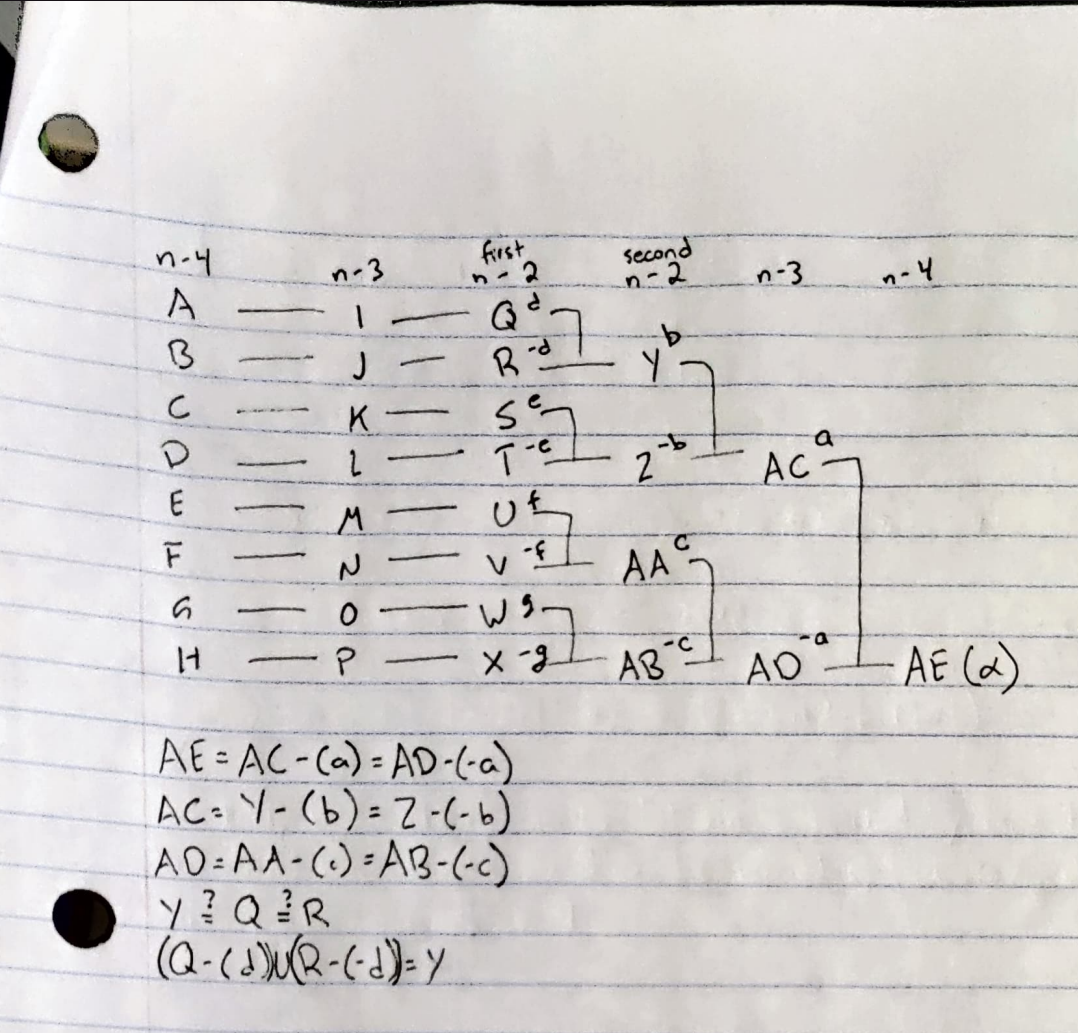 first second
n-4 n-3 n-2 n-2 n-3 n-4
A I Q d
B J R -d Y b
C K S e
D L T -e Z -b AC a
E M U f
F N V -f AA c
G O W g
H P X -g AB -c AD -a AE (α)
AE = AC - (a) = AD - (-a)
AC = Y - (b) = Z - (-b)
AD = AA - (c) = AB - (-c)
Y ≟ Q ≟ R
(Q - (d)) ∪ (R - (-d)) = Y